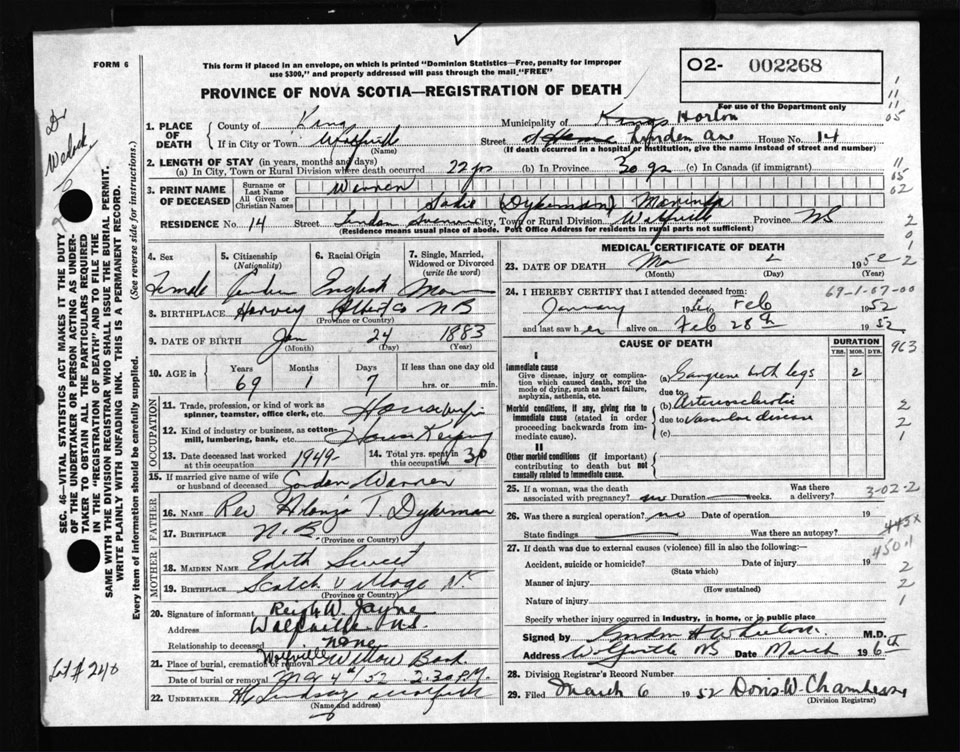 FORM 6
This form if placed in an envelope, on which is printed "Dominion Statistics—Free, penalty for improper
use $300," and properly addressed will pass through the mail "FREE"
O2- 002268
For use of the Department only
PROVINCE OF NOVA SCOTIA—REGISTRATION OF DEATH
1. PLACE OF DEATH
County of Kings Municipality of Kings Horton
If in City or Town Wolfville (Name) Street Linden Ave House No. 14
(If death occurred in a hospital or institution, give the name instead of street and number)
2. LENGTH OF STAY (in years, months and days)
(a) In City, Town or Rural Division where death occurred 22 yrs (b) In Province 30 yrs (c) In Canada (if immigrant)
3. PRINT NAME OF DECEASED
Surname or Last Name Warren
All Given or Christian Names Sadie (Dykeman)
RESIDENCE No. 14 Street Linden Avenue City, Town or Rural Division Wolfville Province NS
(Residence means usual place of abode. Post Office Address for residents in rural parts not sufficient)
4. Sex Female
5. Citizenship (Nationality)
6. Racial Origin English
7. Single, Married, Widowed or Divorced (write the word)
8. BIRTHPLACE Harvey Albert Co NB
(Province or Country)
9. DATE OF BIRTH Jan 24 1883
(Month) (Day) (Year)
10. AGE in Years 69 Months 1 Days 7 If less than one day old hrs. or min.
OCCUPATION
11. Trade, profession, or kind of work as spinner, teamster, office clerk, etc. Housewife
12. Kind of industry or business, as cotten-mill, lumbering, bank, etc. House Keeping
13. Date deceased last worked at this occupation 1949- 14. Total yrs. spent in this occupation 30
15. If married give name of wife or husband of deceased Gordon Warren
FATHER
16. NAME Rev Alonzo T. Dykeman
17. BIRTHPLACE N.B.
(Province or Country)
MOTHER
18. MAIDEN NAME Edith Sweet
19. BIRTHPLACE Scotch Village NS
(Province or Country)
20. Signature of informant W. Jayne
Address Wolfville N.S.
Relationship to deceased none
21. Place of burial, cremation or removal Wolfville Willow Bank
Date of burial or removal Mar 4th 52 2.30 P.M.
22. UNDERTAKER Lindsay Wolfville
(Name and address)
MEDICAL CERTIFICATE OF DEATH
23. DATE OF DEATH Mar 2 1952
(Month) (Day) (Year)
24. I HEREBY CERTIFY that I attended deceased from: 69-1-07-00
January 19 to Feb 1952
and last saw her alive on Feb 28th 1952
CAUSE OF DEATH DURATION
YRS. MOS. DYS.
963
I
Immediate cause
Give disease, injury or complication which caused death, not the mode of dying, such as heart failure, asphyxia, asthenia, etc.
(a) Gangrene both legs 2
due to
Morbid conditions, if any, giving rise to immediate cause (stated in order proceeding backwards from immediate cause).
(b) Arteriosclerotic
due to Vascular disease
(c)
II
Other morbid conditions (if important) contributing to death but not causally related to immediate cause.
25. If a woman, was the death associated with pregnancy? no Duration weeks. Was there a delivery? 3-02-2
26. Was there a surgical operation? no Date of operation 19
State findings Was there an autopsy? 445x
4501
27. If death was due to external causes (violence) fill in also the following:—
Accident, suicide or homicide? Date of injury 19
(State which)
Manner of injury
(How sustained)
Nature of injury
Specify whether injury occurred in industry, in home, or in public place
Signed by M.D.
Address Wolfville NS Date March 6th 19
28. Division Registrar's Record Number
29. Filed March 6 1952 Doris W. Chambers
(Division Registrar)
SEC. 46—VITAL STATISTICS ACT MAKES IT THE DUTY
OF THE UNDERTAKER OR PERSON ACTING AS UNDER-
TAKER TO OBTAIN ALL THE PARTICULARS REQUIRED
IN THE "REGISTRATION OF DEATH" AND TO FILE THE
SAME WITH THE DIVISION REGISTRAR WHO SHALL ISSUE THE BURIAL PERMIT.
WRITE PLAINLY WITH UNFADING INK. THIS IS A PERMANENT RECORD.
Every item of information should be carefully supplied. (See reverse side for instructions.)
Dr
Lot # 240